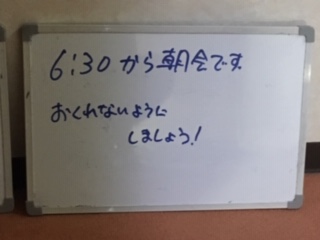 6:30から朝会です
おくれないように
しましょう!